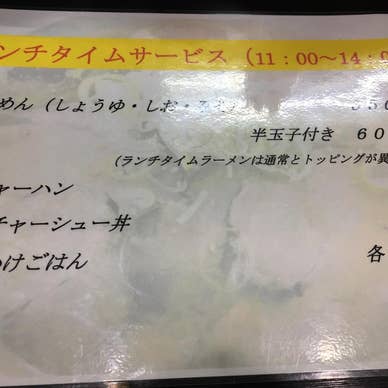 ンチタイムサービス（11：00～14：0
めん（しょうゆ・しお・
半玉子付き　６０
（ランチタイムラーメンは通常とトッピングが異
ャーハン
チャーシュー丼
けごはん
各